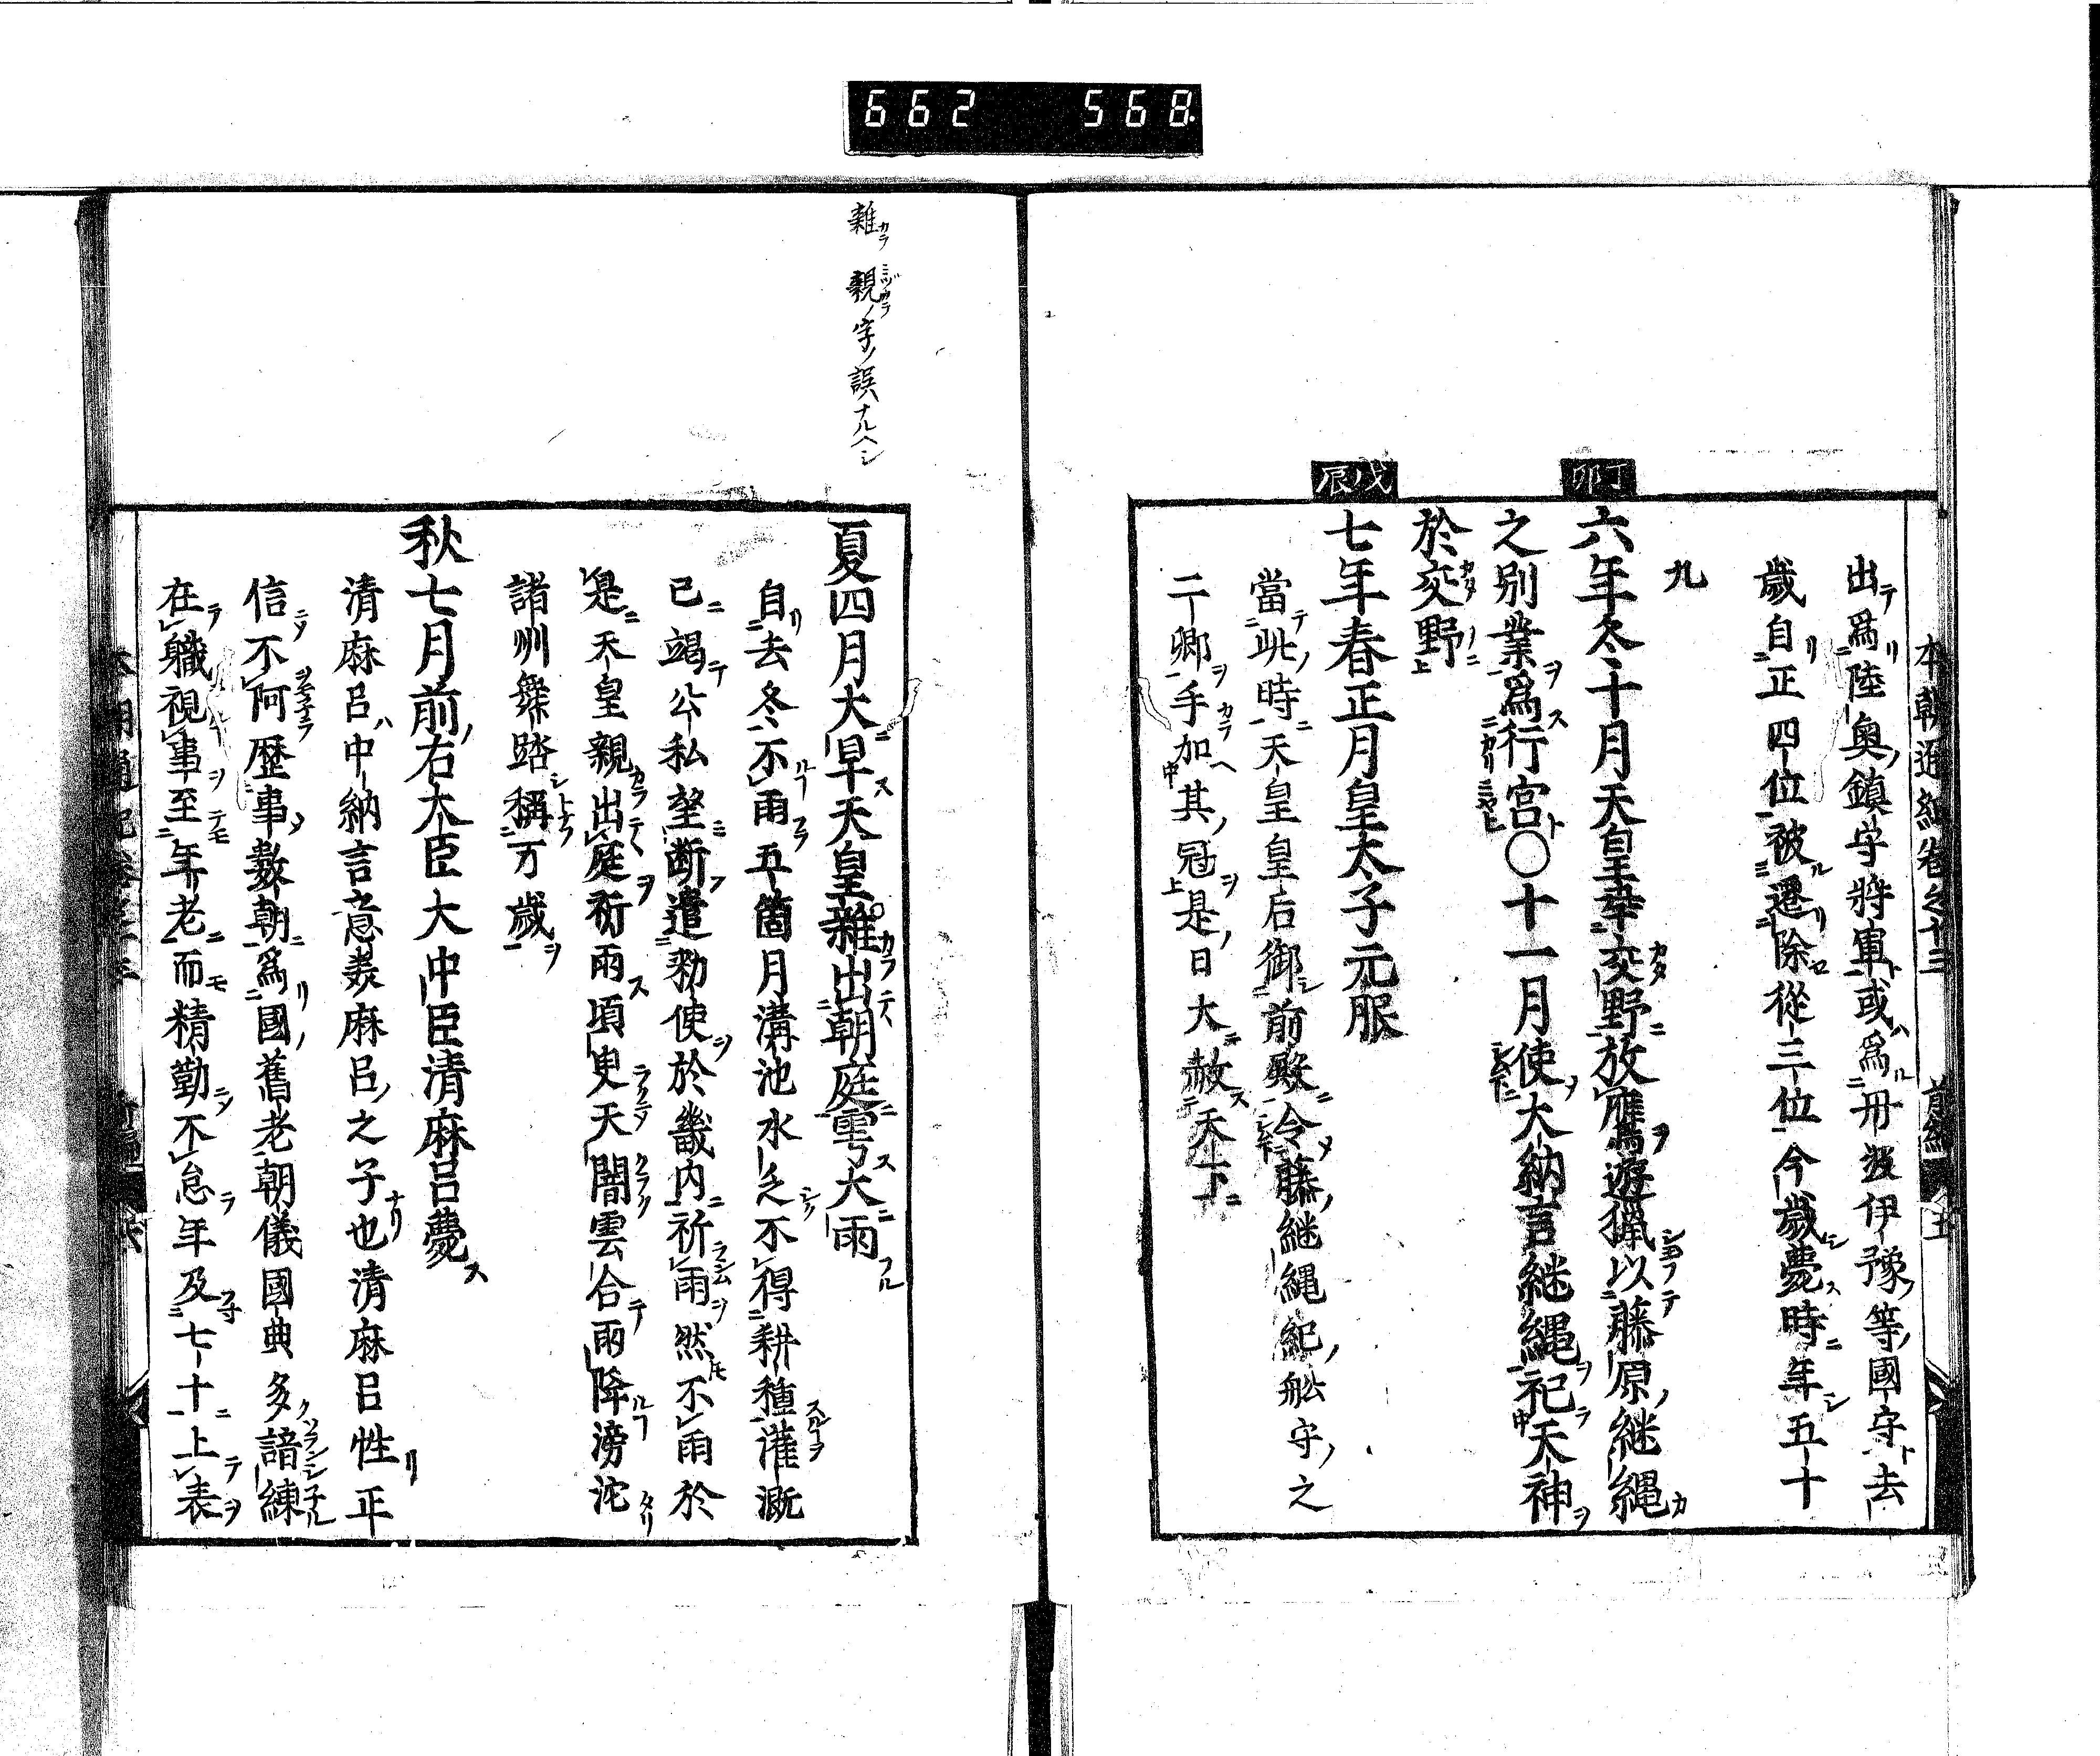 662 568
本朝通紀卷之十三 前編 五
出爲陸奧鎮守將軍或爲丹波伊豫等國守去
歲自正四位被遷除從三位今歲薨時年五十
九
丁卯
六年冬十月天皇幸交野放鷹遊獵以藤原継縄
之別業爲行宮〇十一月使大納言継縄祀天神
於交野
戊辰
七年春正月皇太子元服
當此時天皇皇后御前殿令藤継縄紀舩守之
二卿手加其冠是日大赦天下
雜 親ノ字ノ誤ナルヘシ
夏四月大旱天皇雜出朝庭雩大雨
自去冬不雨五箇月溝池水乏不得耕種灌漑
已竭公私望断遣勅使於畿内祈雨然不雨於
是天皇親出庭祈雨頃更天闇雲合雨降滂沱
諸州舞踏稱万歲
秋七月前右大臣大中臣清麻呂薨
清麻呂中納言意美麻呂之子也清麻呂性正
信不阿歷事數朝爲國舊老朝儀國典多諳練
在職視事至年老而精勤不怠年及七十上表